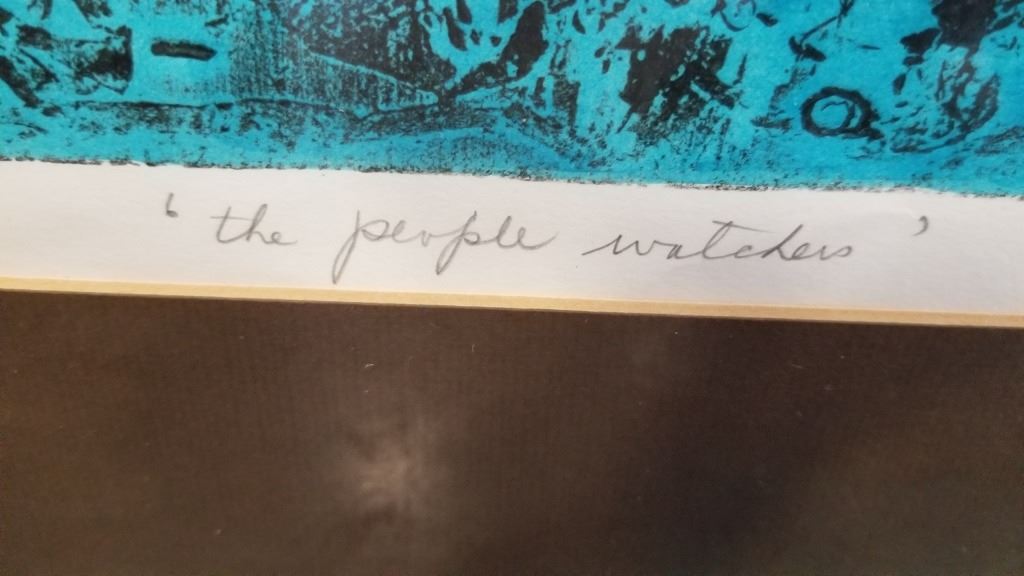 'the people watchers'